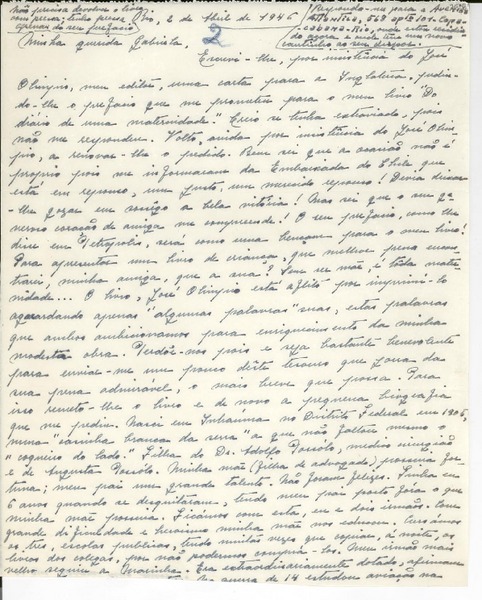 Não precisa devolver o livro,
com pressa; tenho pressa
apenas do seu prefácio
Rio, 2 de Abril de 1946
Responda-me para a Avenida
Atlântica, 568 apto 101 - Copa-
cabana - Rio, onde estou residin-
do agora e onde tem novo
cantinho ao seu dispor.
2
Minha querida Gabriela,
Escrevi-lhe, por insistência do José
Olimpio, meu editor, uma carta para a Inglaterra, pedin-
do-lhe o prefácio que me prometeu para o meu livro "Do
diário de uma maternidade". Creio se tenha extraviado, pois
não me respondeu. Volto, ainda por insistência do José Olim-
pio, a renovar-lhe o pedido. Bem sei que a ocasião não é
própria pois me informaram da Embaixada do Chile que
está em repouso, um justo, um merecido repouso! Devia deixar-
-lhe gozar em sossego a bela vitória! Mas sei que o seu ge-
neroso coração de amiga me compreende! O seu prefácio, como lhe
disse em Petropolis, será como uma bençam para o meu livro!
Para apresentar um livro de crianças, que melhor pena encon-
trarei, minha amiga, que a sua? Sem ser mãe, é toda mater-
nidade... O livro, José Olimpio está aflito por imprimí-lo
aguardando apenas "algumas palavras" suas, estas palavras
que ambos ambicionamos para enriquecimento da minha
modesta obra. Perdôe-nos pois e seja bastante benevolente
para enviar-me um pouco dêste tesouro que jorra da
sua pena admirável, o mais breve que possa. Para
isso remeto-lhe o livro e de novo a pequena biografia
que me pediu. Nasci em Inhaúma no Distrito Federal em 1905,
numa "casinha branca da serra" a que não faltou mesmo o
"coqueiro do lado". Filha do Dr. Adolfo Possôlo, médico cirurgião
e de Augusta Possôlo. Minha mãe (filha de advogado) possuia for-
tuna; meu pai um grande talento. Não foram felizes. Tinha eu
6 anos quando se desquitaram, tendo meu pai posto fóra o que
minha mãe possuia. Ficamos com esta, eu e dois irmãos. Com
grande dificuldade e heroismo minha mãe nos educou. Cursamos
os tres, escolas publicas, tendo muitas vezes que copiar, á noite, os
livros dos colegas, por não podermos comprá-los. Meu irmão mais
velho seguiu a Marinha. Era extraordinariamente dotado, afirmam
guerra de 14 estudou aviação na